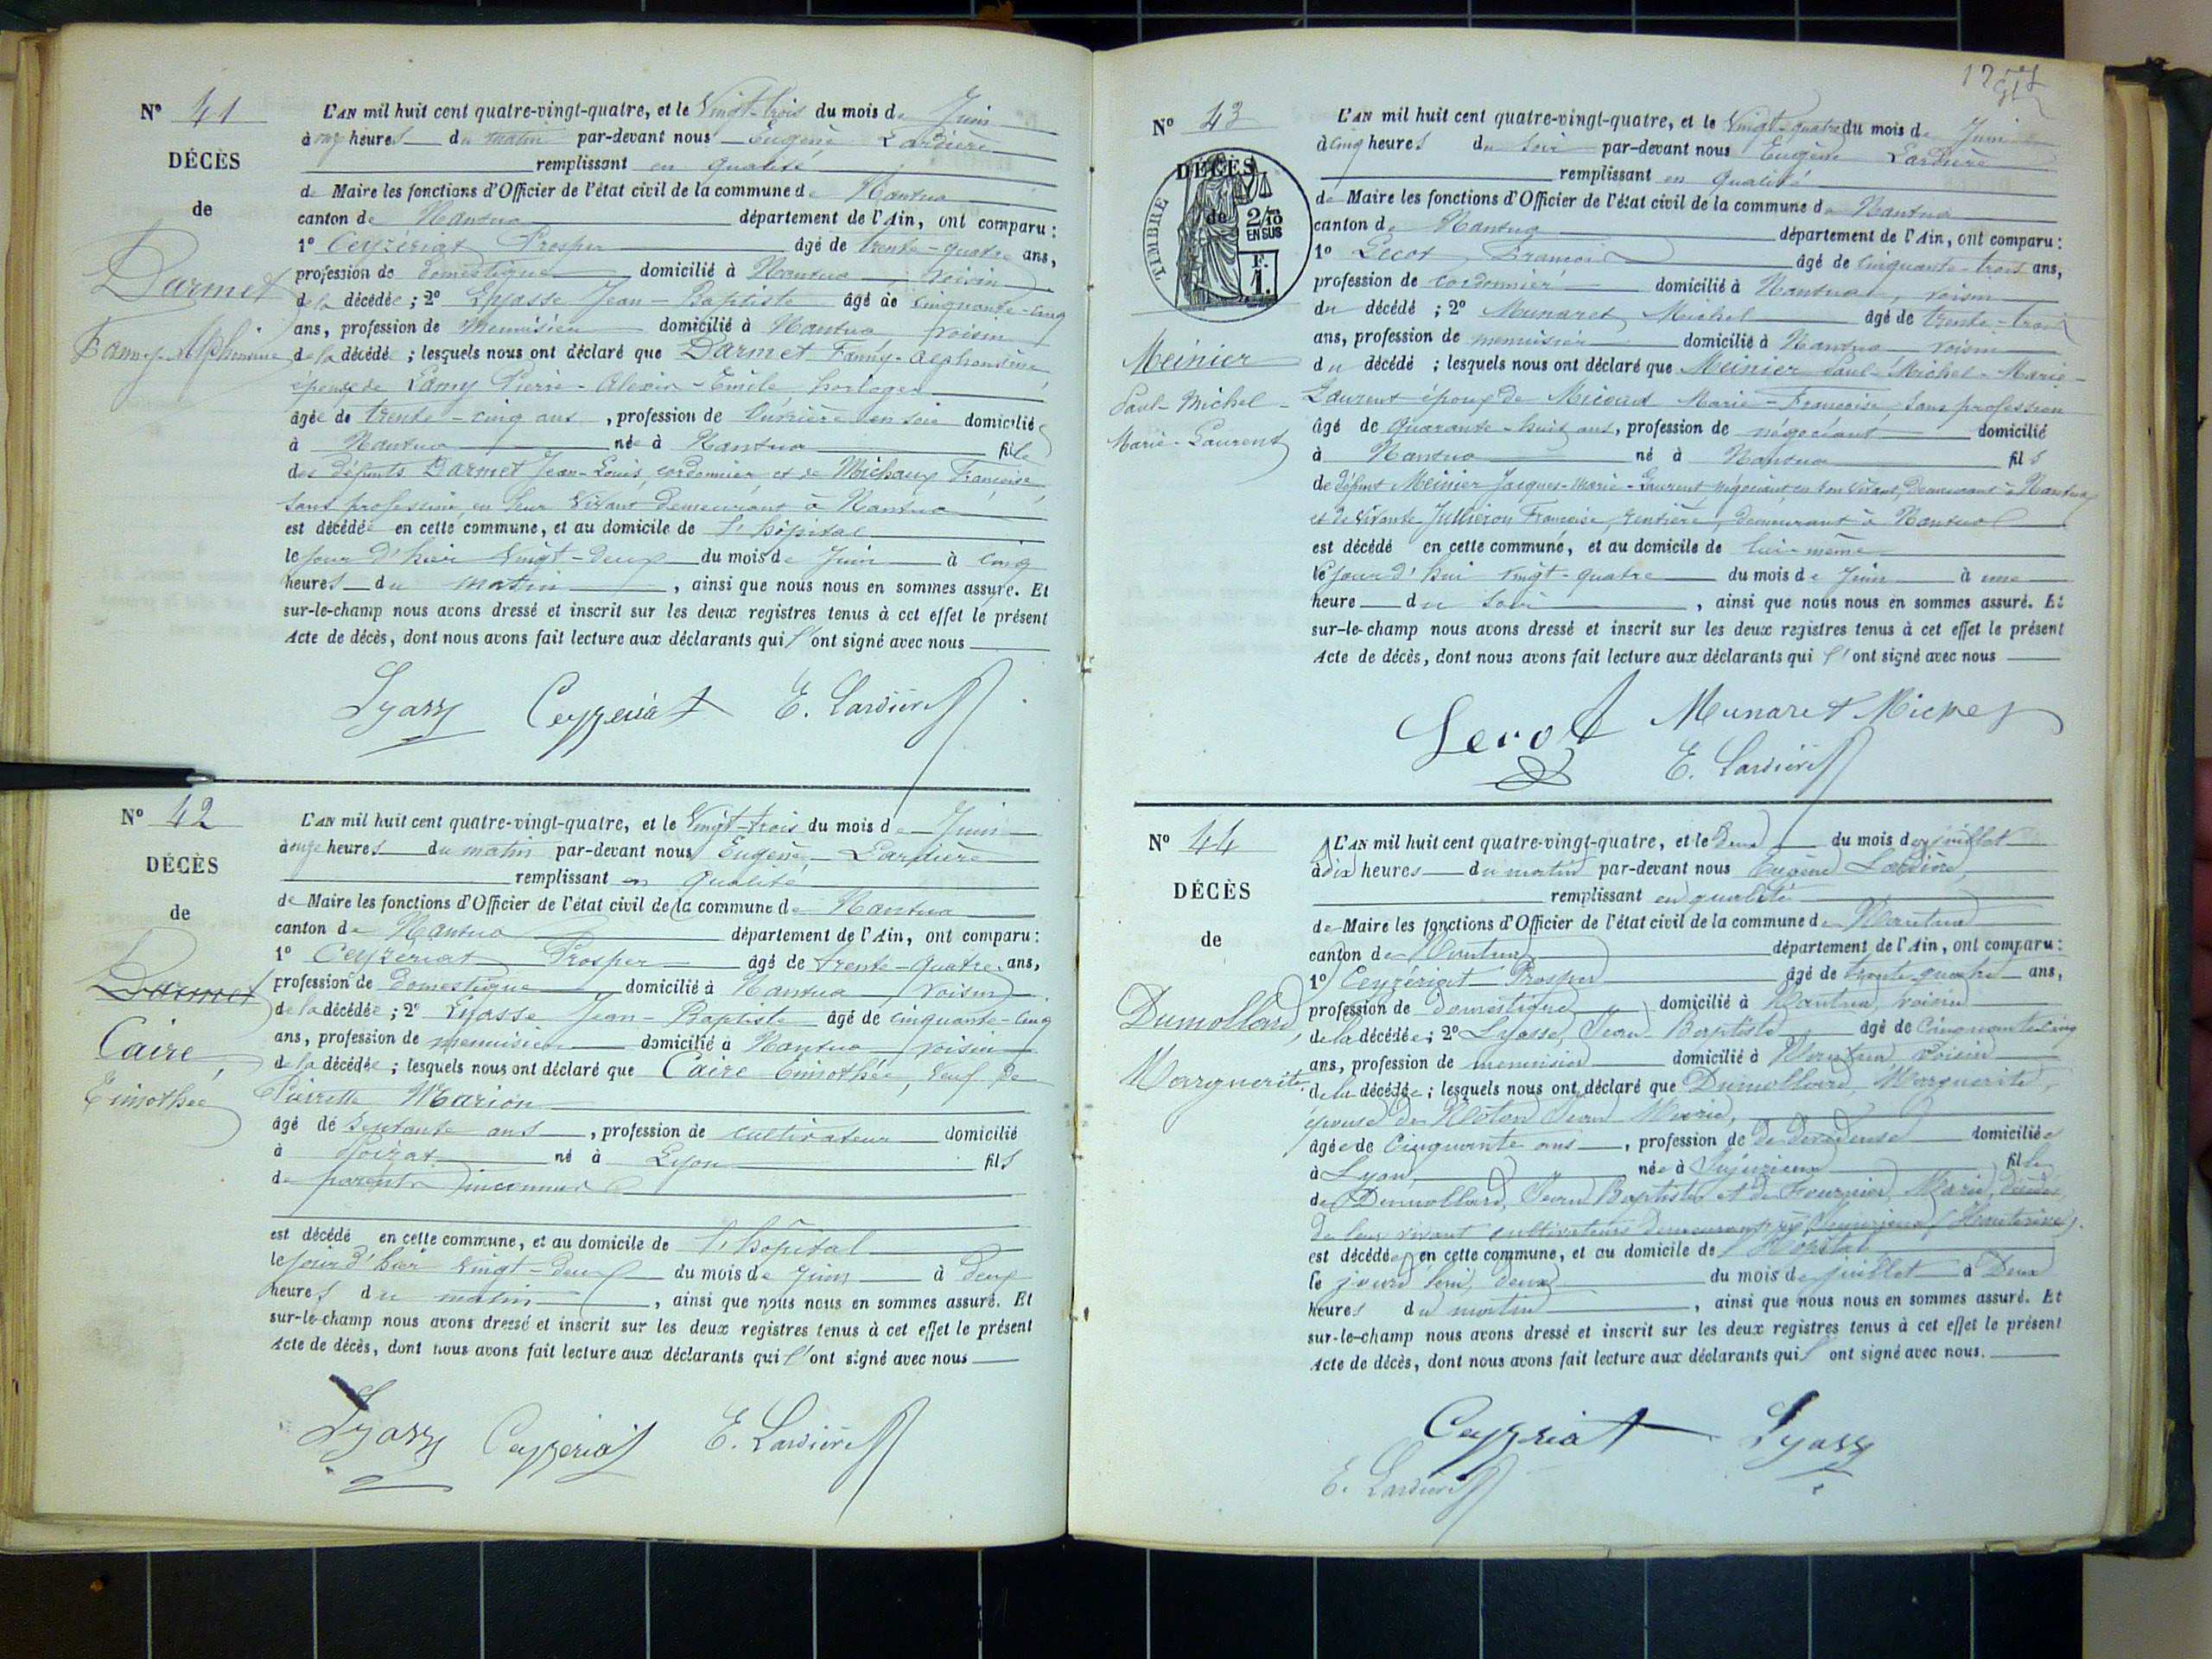 N° 41
DÉCÈS
de
Darmet
Fanny-Alphonsine
L'AN mil huit cent quatre-vingt-quatre, et le Vingt-trois du mois de Juin
à onze heures du matin par-devant nous Eugène Lardière
remplissant en qualité
de Maire les fonctions d'Officier de l'état civil de la commune de Nantua
canton de Nantua département de l'Ain, ont comparu :
1° Ceyzériat Prosper âgé de trente-quatre ans,
profession de domestique domicilié à Nantua, voisin
de la décédée ; 2° Lyasse Jean-Baptiste âgé de cinquante-cinq
ans, profession de menuisier domicilié à Nantua, voisin
de la décédé ; lesquels nous ont déclaré que Darmet Fanny-Alphonsine
épouse de Lamy Pierre-Alexis-Emile, horloger
âgée de trente-cinq ans, profession de Ouvrière en soie domiciliée
à Nantua née à Nantua fille
des défunts Darmet Jean-Louis, cordonnier et de Michaux Françoise,
sans profession, en leur vivant demeurant à Nantua
est décédée en cette commune, et au domicile de l'hôpital
le jour d'hier Vingt-deux du mois de Juin à cinq
heures du matin, ainsi que nous nous en sommes assuré. Et
sur-le-champ nous avons dressé et inscrit sur les deux registres tenus à cet effet le présent
Acte de décès, dont nous avons fait lecture aux déclarants qui l'ont signé avec nous
Lyasse Ceyzeriat E. Lardière
N° 42
DÉCÈS
de
Darmet
Caire
Timothée
L'AN mil huit cent quatre-vingt-quatre, et le Vingt-trois du mois de Juin
à onze heures du matin par-devant nous Eugène Lardière
remplissant en qualité
de Maire les fonctions d'Officier de l'état civil de la commune de Nantua
canton de Nantua département de l'Ain, ont comparu :
1° Ceyzeriat Prosper âgé de trente-quatre ans,
profession de domestique domicilié à Nantua, voisin
de la décédée ; 2° Lyasse Jean-Baptiste âgé de cinquante-cinq
ans, profession de menuisier domicilié à Nantua, voisin
de la décédée ; lesquels nous ont déclaré que Caire Timothée, veuf de
Pierrette Marion
âgé de septante ans, profession de cultivateur domicilié
à Poizat né à Lyon fils
de parents inconnus
est décédé en cette commune, et au domicile de l'hôpital
le jour d'hier vingt-deux du mois de Juin à deux
heures du matin, ainsi que nous nous en sommes assuré. Et
sur-le-champ nous avons dressé et inscrit sur les deux registres tenus à cet effet le présent
Acte de décès, dont nous avons fait lecture aux déclarants qui l'ont signé avec nous
Lyasse Ceyzeriat E. Lardière
N° 43
DÉCÈS
de
TIMBRE
2/10 EN SUS
F. 1.
Meinier
Paul-Michel-
Marie-Laurent
L'AN mil huit cent quatre-vingt-quatre, et le Vingt-quatre du mois de Juin
à cinq heures du soir par-devant nous Eugène Lardière
remplissant en qualité
de Maire les fonctions d'Officier de l'état civil de la commune de Nantua
canton de Nantua département de l'Ain, ont comparu :
1° Lecot François âgé de cinquante-trois ans,
profession de cordonnier domicilié à Nantua, voisin
du décédé ; 2° Munaret Michel âgé de trente-trois
ans, profession de menuisier domicilié à Nantua voisin
du décédé ; lesquels nous ont déclaré que Meinier Paul-Michel-Marie-
Laurent époux de Micoud Marie-Françoise, sans profession
âgé de quarante-huit ans, profession de négociant domicilié
à Nantua né à Nantua fils
de défunt Meinier Jacques-Marie-Laurent négociant en son vivant, demeurant à Nantua,
et de vivante Jullieron Françoise, rentière, demeurant à Nantua
est décédé en cette commune, et au domicile de lui-même
le jour d'hui vingt-quatre du mois de Juin à une
heure du soir, ainsi que nous nous en sommes assuré. Et
sur-le-champ nous avons dressé et inscrit sur les deux registres tenus à cet effet le présent
Acte de décès, dont nous avons fait lecture aux déclarants qui l'ont signé avec nous
Lecot Munaret Michel
E. Lardière
N° 44
DÉCÈS
de
Dumollard,
Marguerite
L'AN mil huit cent quatre-vingt-quatre, et le deux du mois de juillet
à dix heures du matin par-devant nous Eugène Lardière,
remplissant en qualité
de Maire les fonctions d'Officier de l'état civil de la commune de Nantua
canton de Nantua département de l'Ain, ont comparu :
1° Ceyzériat Prosper âgé de trente quatre ans,
profession de domestique domicilié à Nantua, voisin
de la décédée ; 2° Lyasse, Jean-Baptiste âgé de Cinquante cinq
ans, profession de menuisier domicilié à Nantua voisin
de la décédée ; lesquels nous ont déclaré que Dumollard, Marguerite,
épouse de Jean Marie,
âgée de Cinquante ans, profession de dévideuse domiciliée
à Lyon, née à Jujurieux fille
de Dumollard, Jean Baptiste et de Fournier, Marie,
de leur vivant cultivateurs demeurant à Jujurieux
est décédée en cette commune, et au domicile de l'Hôpital
le jourd'hui, deux du mois de juillet à Deux
heures du matin, ainsi que nous nous en sommes assuré. Et
sur-le-champ nous avons dressé et inscrit sur les deux registres tenus à cet effet le présent
Acte de décès, dont nous avons fait lecture aux déclarants qui l'ont signé avec nous.
Ceyzeriat Lyasse
E. Lardière